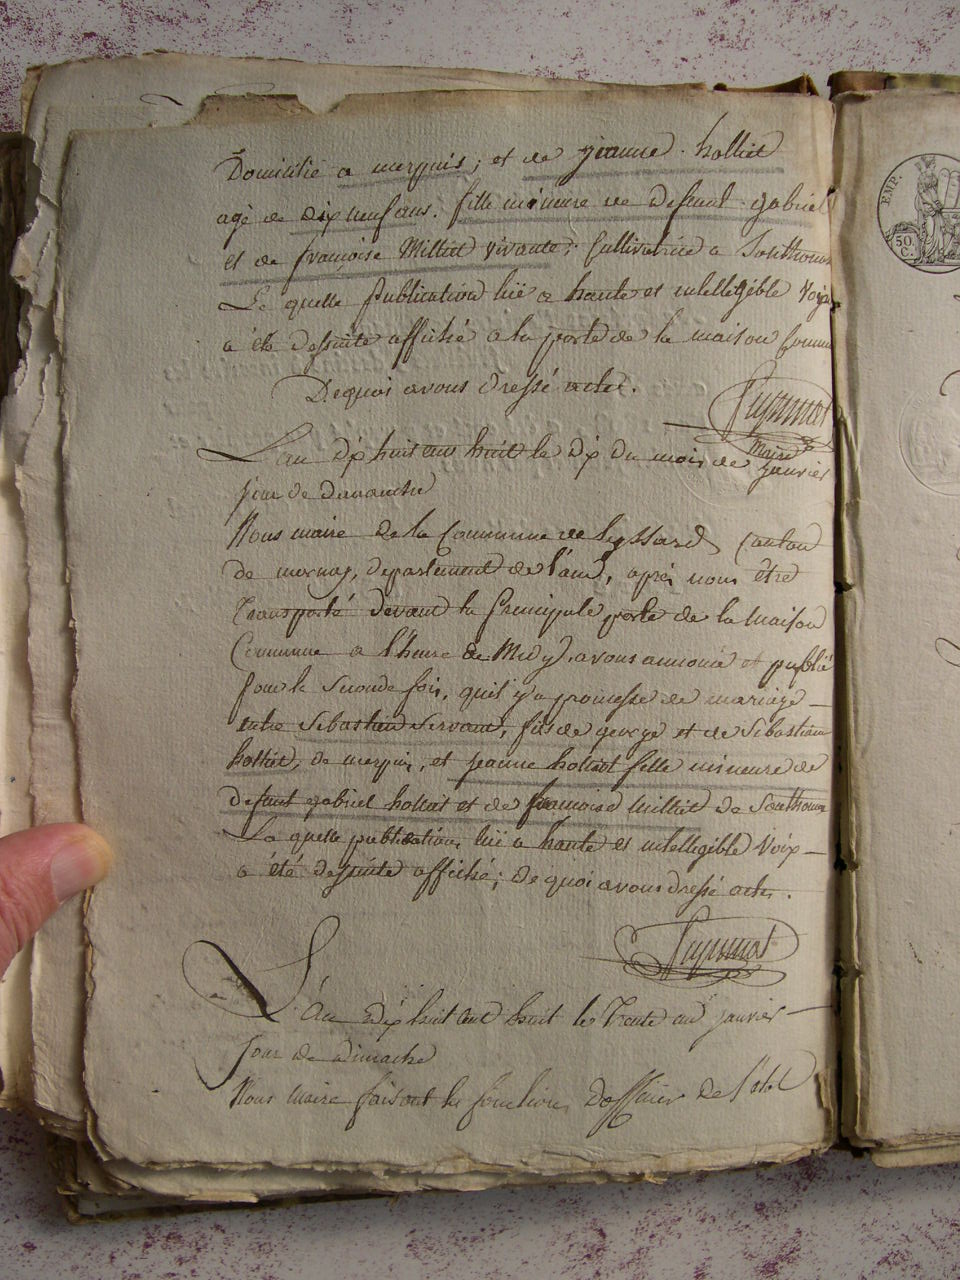 Domicilié a merpuis; et de jeanne holliet
agé de dix neuf ans. fille mineure de defeunt gabriel
et de françoise Milliet vivante; Cultivatrice a Soutthonax
La quelle publication lüe a haute et intelligible Voix
a été desuite affiché a la porte de la maison Commune
De quoi avons Dressé acte.
Maire
L'an dix huit cent huit le dix du mois de janvier
jour de dimanche
Nous maire de la Commune de Leyssard Canton
de mornay, departement de l'ain, aprés nous être
Transporté devant la principale porte de la maison
Commune a l'heure de Midy, avons annoncé et publié
pour la seconde fois, qu'il y a promesse de mariage
entre Sébastien Servant, fils de george et de Sebastiane
holliet, de merpuis, et jeanne holliet fille mineure de
defunt gabriel holliet et de françoise Milliet de Soutthonax
La quelle publication, lüe a haute et intelligible Voix
a été desuite affiché; de quoi avons dressé acte.
L'an dix huit cent huit le Trente un janvier
jour de dimache
Nous maire faisant les fonctions D'officier de l'etat
EMP.
50.
C.